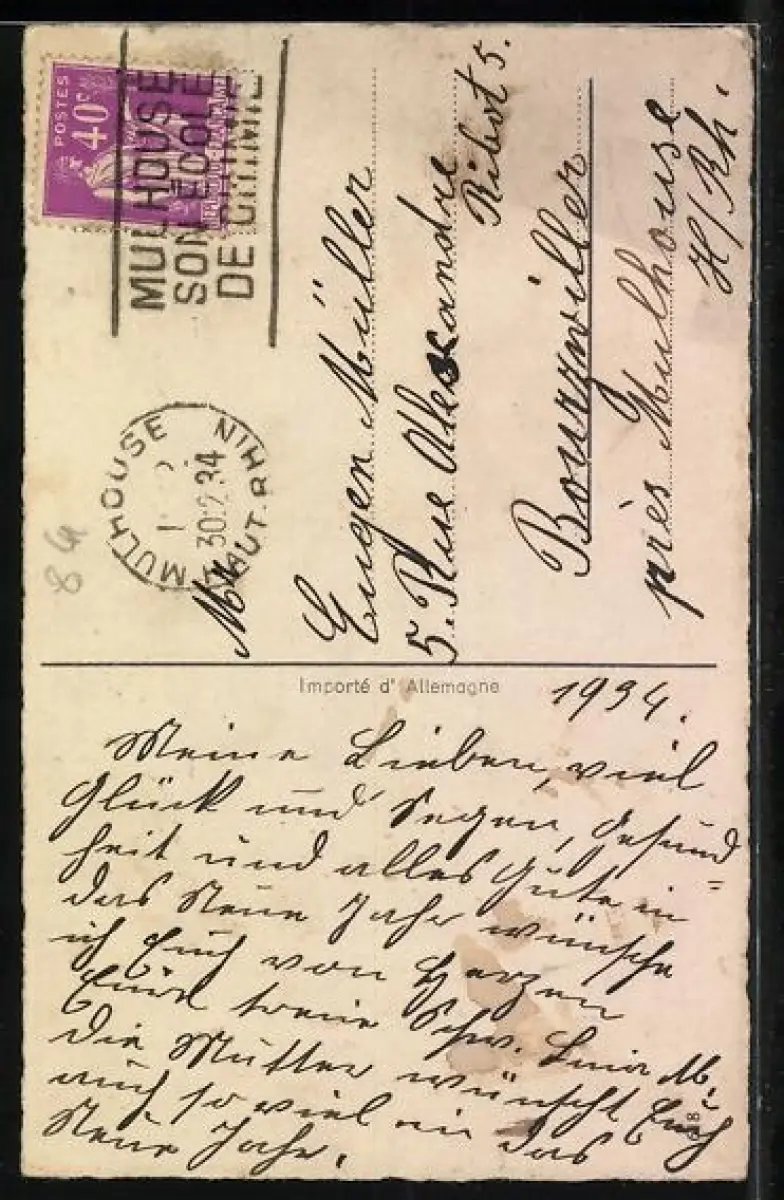 POSTES
40c
MULHOUSE
SON ECOLE
DE CHIMIE
MULHOUSE
30.12.34
HAUT-RHIN
84
Mr
Eugen Müller
5. Rue Alexandre
Ribot 5.
Bourzwiller
près Mulhouse
H/Rh.
Importé d'Allemagne
1934.
Meine Lieben, viel
Glück und Segen, Gesund=
heit und alles Gute in
das Neue Jahr wünsche
ich Euch von Herzen
Eure treue Schw. M.
Die Mutter wünscht Euch
auch so viel in das
Neue Jahr.